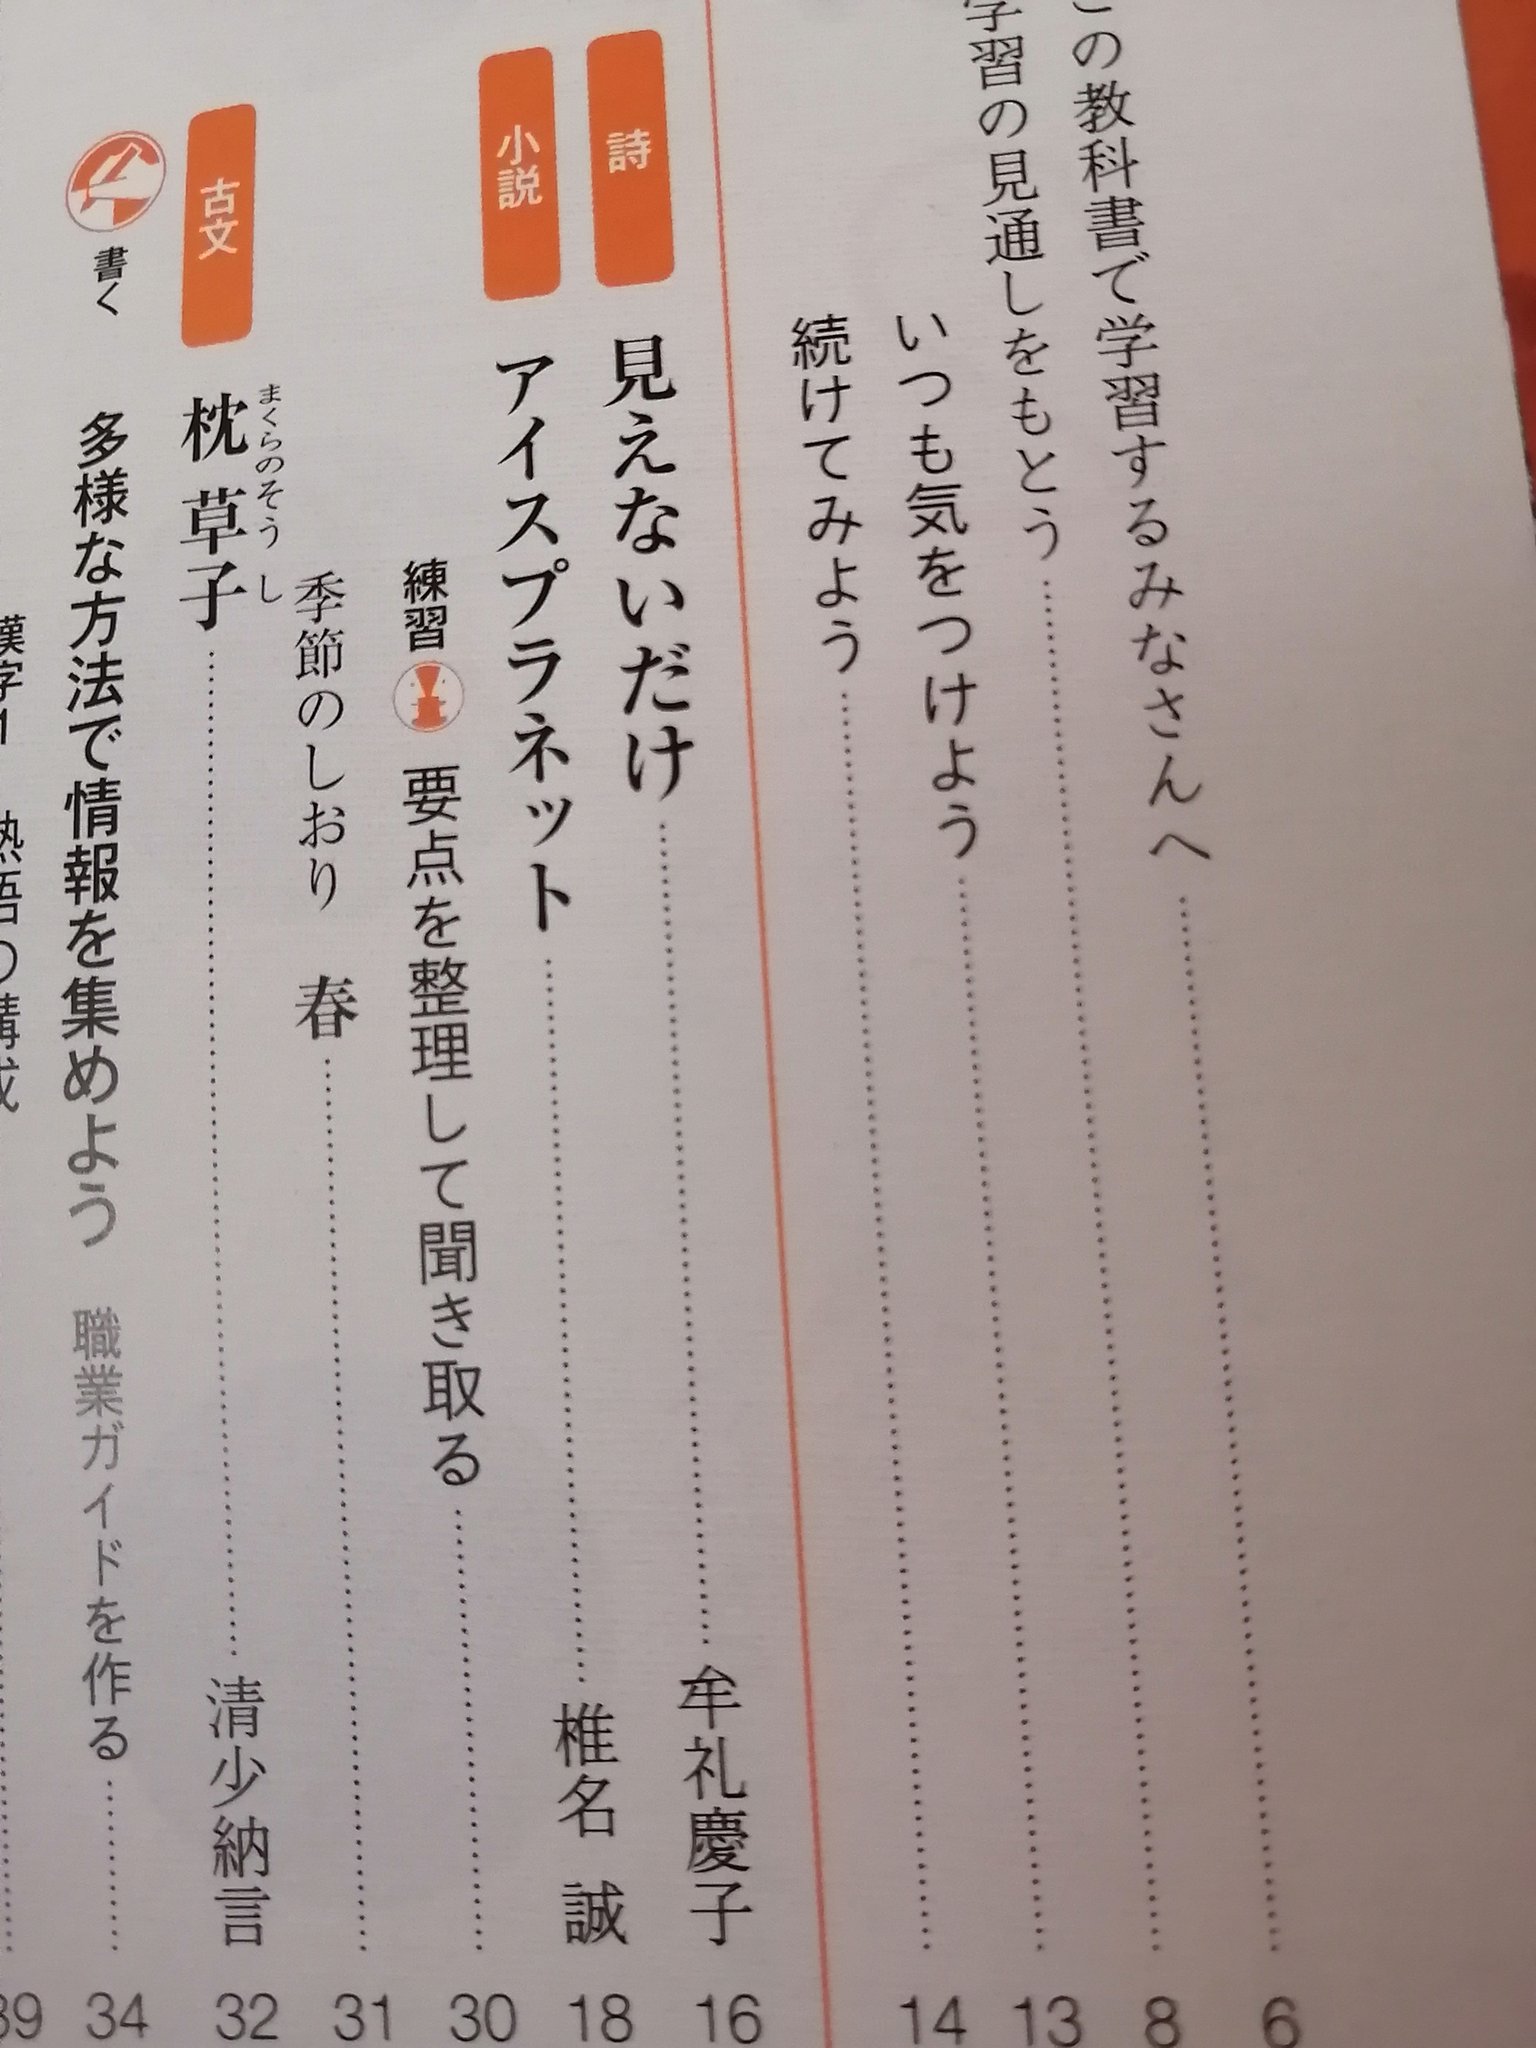 の教科書で学習するみなさんへ 6
学習の見通しをもとう 8
いつも気をつけよう 13
続けてみよう 14
詩 見えないだけ 牟礼慶子 16
小説 アイスプラネット 椎名 誠 18
練習 要点を整理して聞き取る 30
季節のしおり 春 31
まくらのそうし
古文 枕草子 清少納言 32
書く 多様な方法で情報を集めよう 職業ガイドを作る 34
漢字1 熟語の構成 39